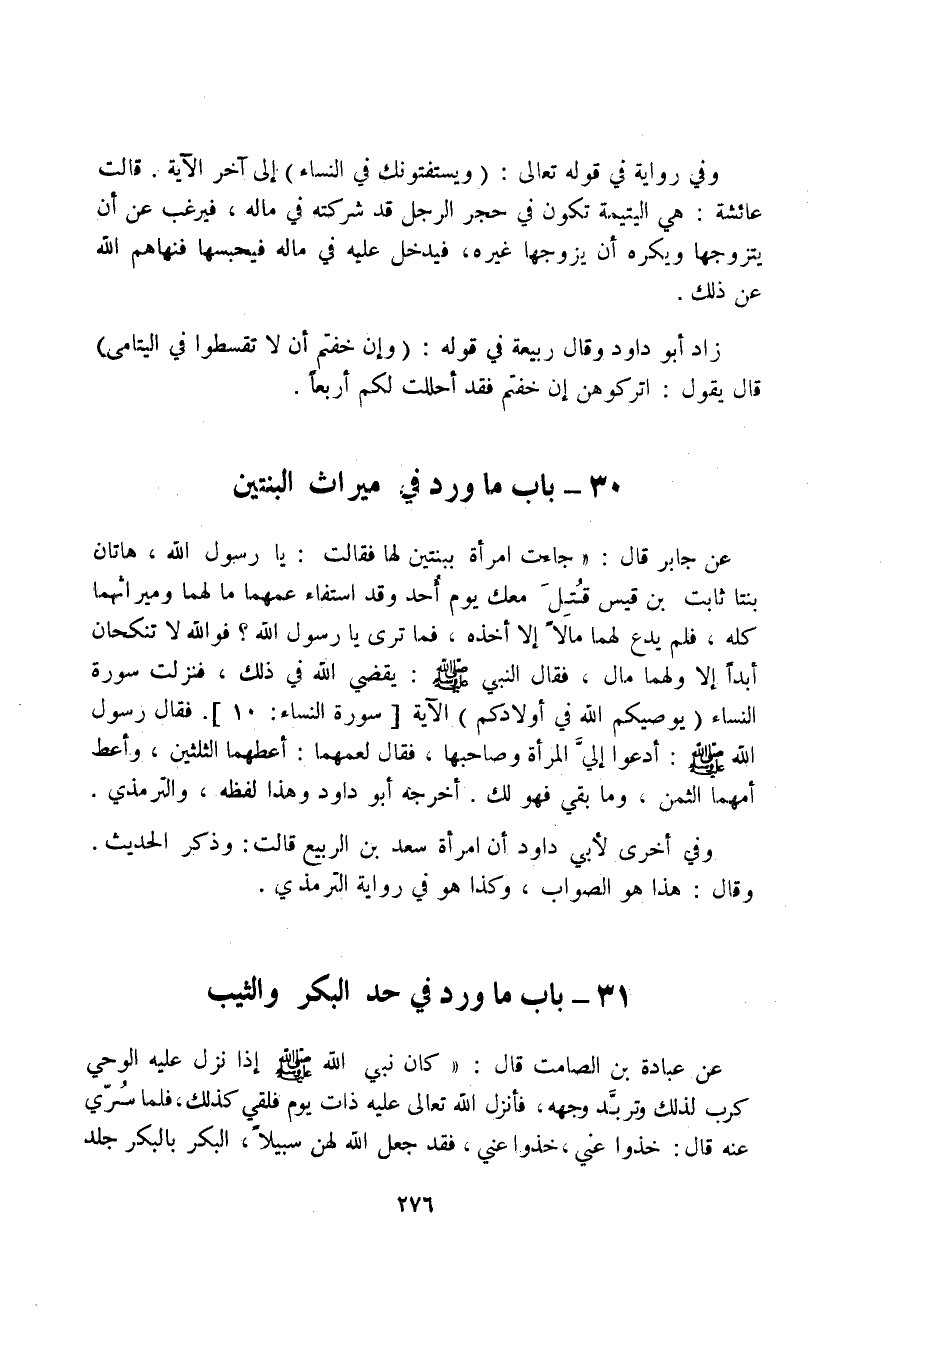 وفي رواية في قوله تعالى : ( ويستفتونك في النساء ) إلى آخر الآية . قالت
عائشة : هي اليتيمة تكون في حجر الرجل قد شركته في ماله ، فيرغب عن أن
يتزوجها ويكره أن يزوجها غيره، فيدخل عليه في ماله فيحبسها فنهاهم الله
عن ذلك .
زاد أبو داود وقال ربيعة في قوله : ( وإن خفتم أن لا تقسطوا في اليتامى)
قال يقول : اتركوهن إن خفتم فقد أحللت لكم أربعاً .
٣٠ – باب ما ورد في ميراث البنتين
عن جابر قال : « جاءت امرأة ببنتين لها فقالت : يا رسول الله ، هاتان
بنتا ثابت بن قيس قُتِلَ معك يوم أُحد وقد استفاء عمهما ما لهما وميراثهما
كله ، فلم يدع لهما مالاً إلا أخذه ، فما ترى يا رسول الله ؟ فوالله لا تنكحان
أبداً إلا ولهما مال ، فقال النبي ﷺ : يقضي الله في ذلك ، فنزلت سورة
النساء ( يوصيكم الله في أولادكم ) الآية [ سورة النساء: ١٠ ]. فقال رسول
الله ﷺ : أدعوا إليَّ المرأة وصاحبها ، فقال لعمهما : أعطهما الثلثين ، وأعط
أمهما الثمن ، وما بقي فهو لك . أخرجه أبو داود وهذا لفظه ، والترمذي .
وفي أخرى لأبي داود أن امرأة سعد بن الربيع قالت: وذكر الحديث .
وقال : هذا هو الصواب ، وكذا هو في رواية الترمذي .
٣١ – باب ما ورد في حد البكر والثيب
عن عبادة بن الصامت قال : « كان نبي الله ﷺ إذا نزل عليه الوحي
كرب لذلك وتربَّد وجهه، فأنزل الله تعالى عليه ذات يوم فلقي كذلك،فلما سُرّي
عنه قال: خذوا عني ،خذوا عني ، فقد جعل الله لهن سبيلاً ، البكر بالبكر جلد
٢٧٦